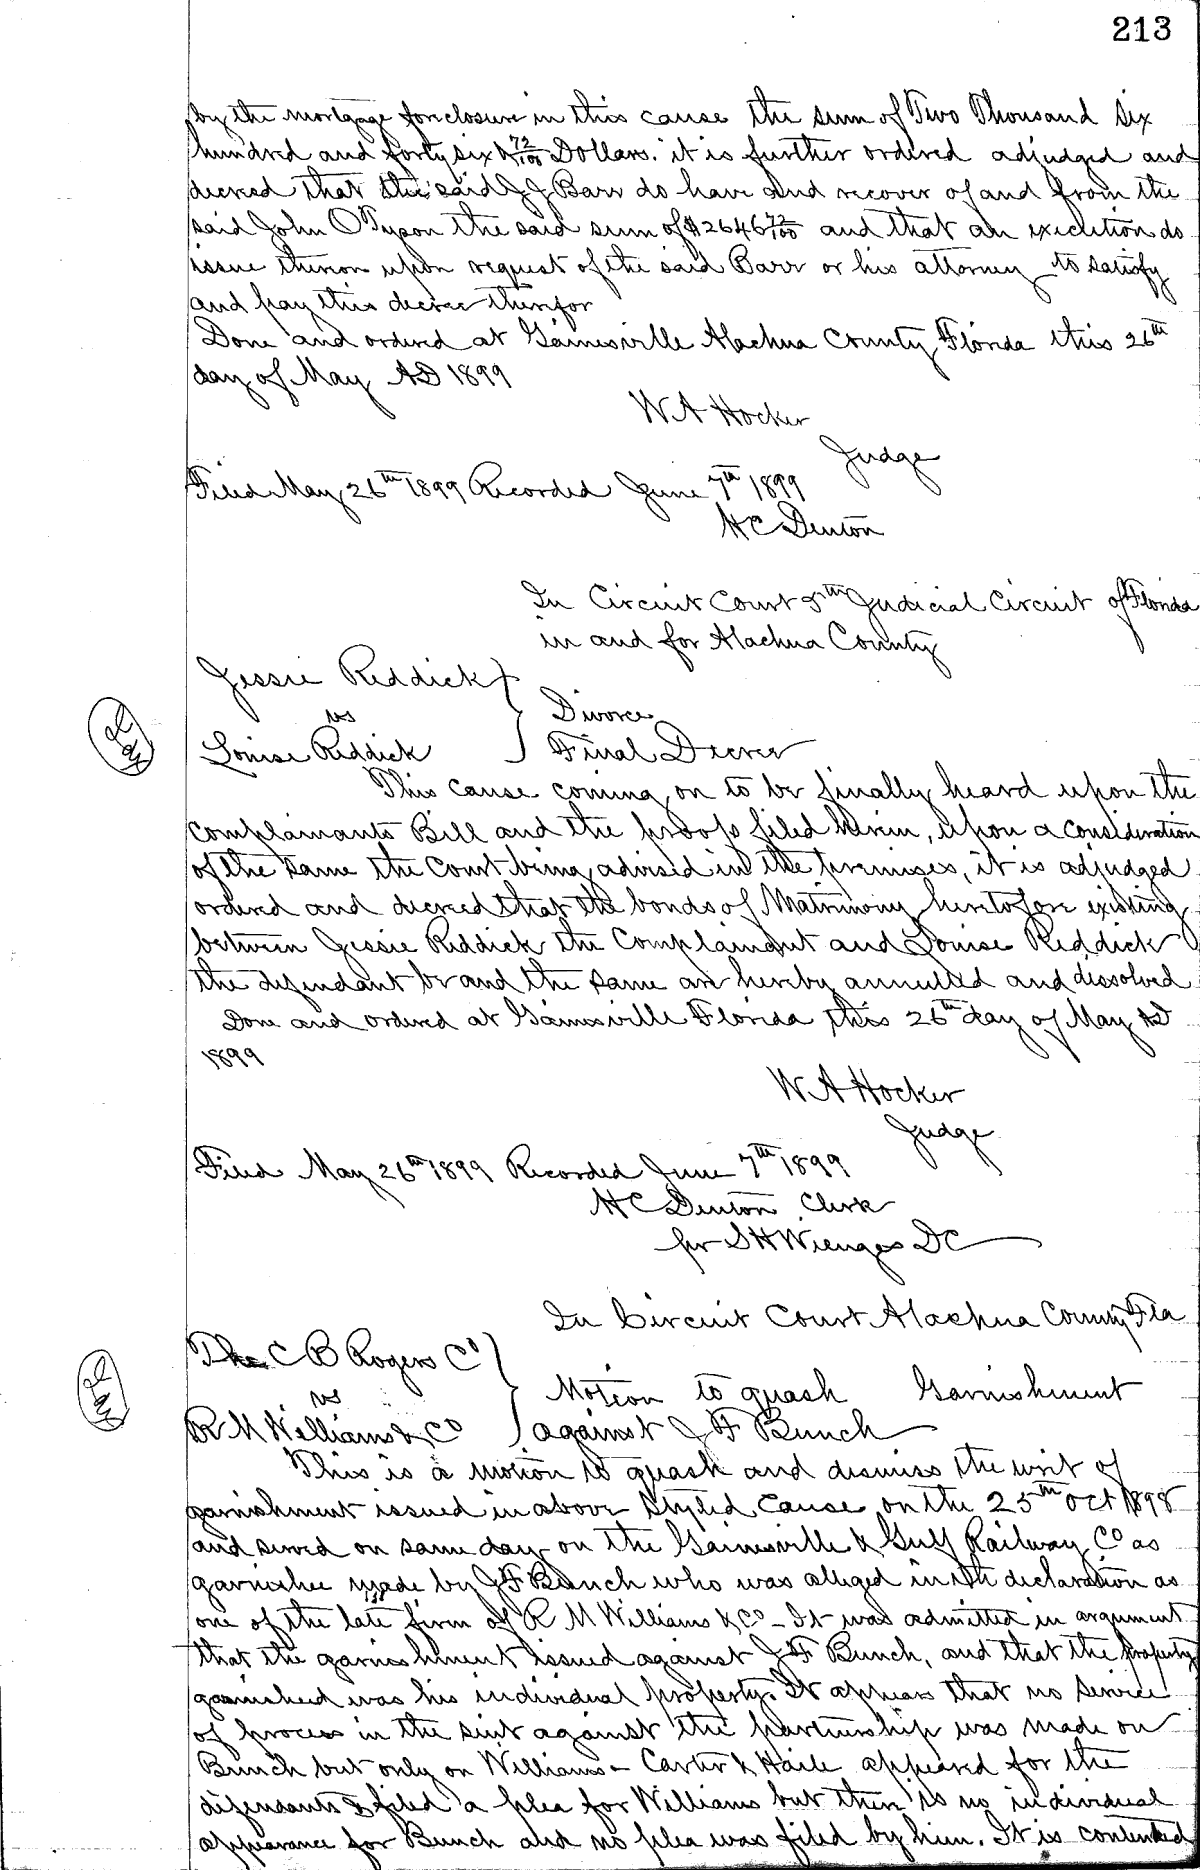 213
by the mortgage foreclosure in this cause the sum of Two Thousand Six
hundred and forty six & 72/100 Dollars. it is further ordered adjudged and
decreed that the said J J Barr do have and recover of and from the
said John O Tyson the said sum of $2646 72/100 and that an execution do
issue thereon upon request of the said Barr or his attorney to satisfy
and pay this decree therefor
Done and ordered at Gainesville Alachua County Florida this 26th
day of May AD 1899
W A Hocker
Judge
Filed May 26th 1899 Recorded June 7th 1899
H C Denton
In Circuit Court 5th Judicial Circuit of Florida
in and for Alachua County
Jessie Reddick
vs
Divorce
Louise Reddick
Final Decree
This cause coming on to be finally heard upon the
complainants Bill and the proofs filed herein, upon a consideration
of the same the Court being advised in the premises, it is adjudged
ordered and decreed that the bonds of Matrimony heretofore existing
between Jessie Reddick the Complainant and Louise Reddick
the defendant be and the same are hereby annulled and dissolved
Done and ordered at Gainesville Florida this 26th day of May AD
1899
W A Hocker
Judge
Filed May 26th 1899 Recorded June 7th 1899
H C Denton Clerk
per S H Wienges DC
In Circuit Court Alachua County Fla
The C B Rogers Co
vs
Motion to quash Garnishment
R M Williams & Co
against J F Bunch
This is a motion to quash and dismiss the writ of
garnishment issued in above styled cause on the 25th Oct 1898
and served on same day on the Gainesville & Gulf Railway Co as
garnishee made by J F Bunch who was alleged in the declaration as
one of the late firm of R M Williams & Co - It was admitted in argument
that the garnishment issued against J F Bunch, and that the property
garnisheed was his individual property. It appears that no service
of process in the suit against the partnership was made on
Bunch but only on Williams - Carter & Haile appeared for the
defendants & filed a plea for Williams but there is no individual
appearance for Bunch and no plea was filed by him. It is contended